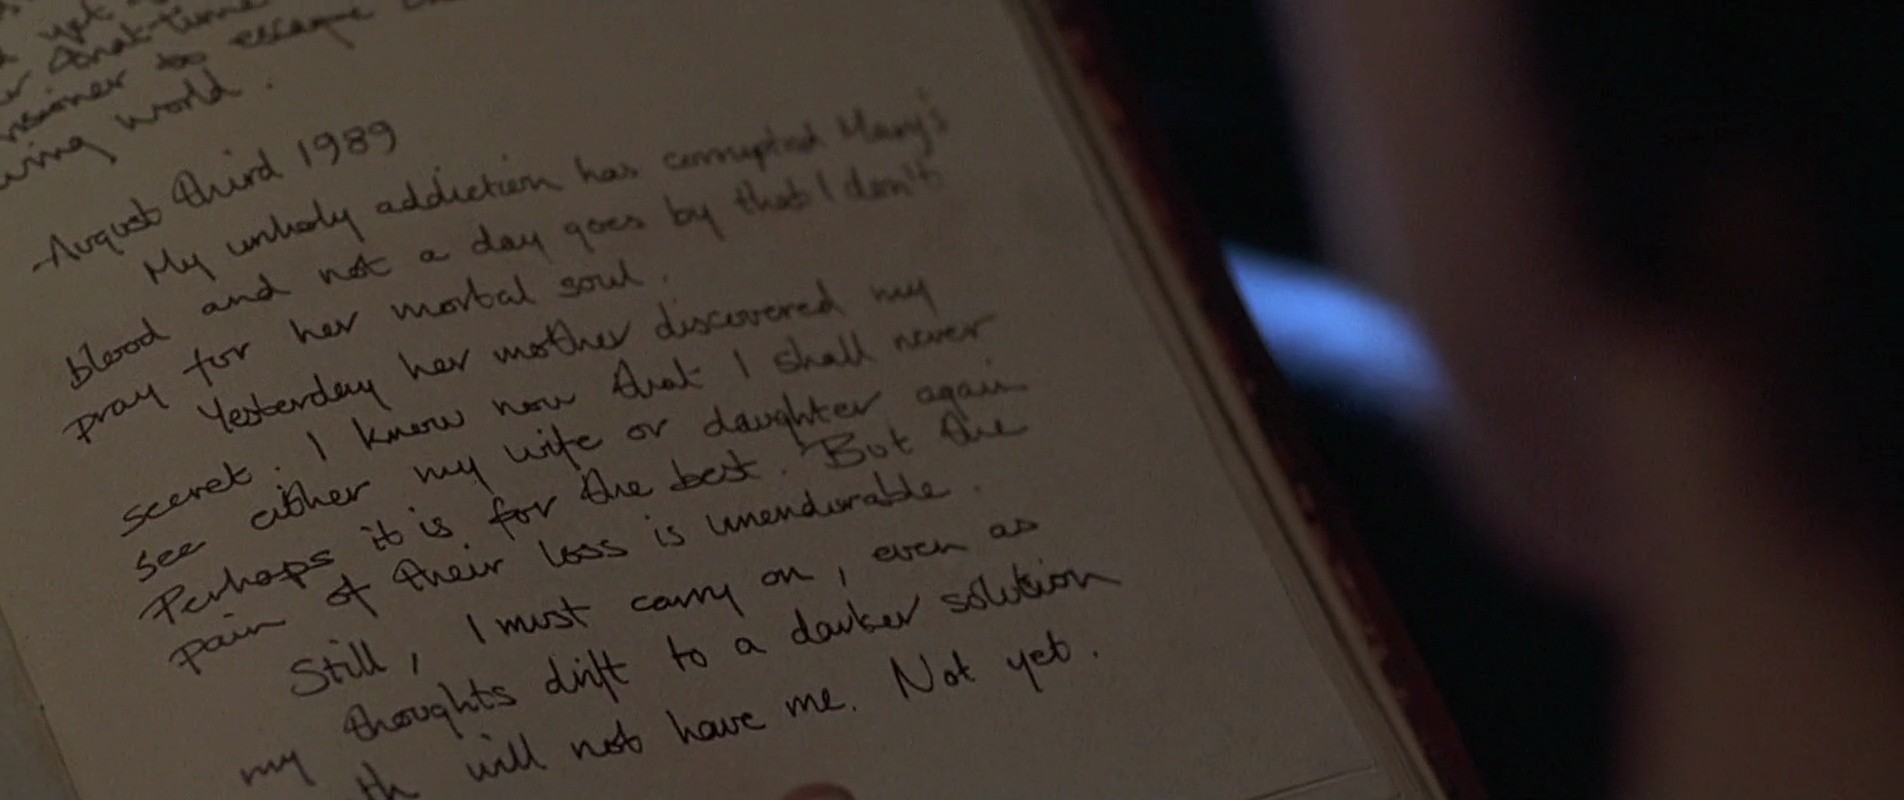 yet
that time
to escape
world.
August third 1989
My unholy addiction has corrupted Mary's
blood and not a day goes by that I don't
pray for her mortal soul.
Yesterday her mother discovered my
secret. I know now that I shall never
see either my wife or daughter again
Perhaps it is for the best. But the
pain of their loss is unendurable.
Still, I must carry on, even as
my thoughts drift to a darker solution
will not have me. Not yet.